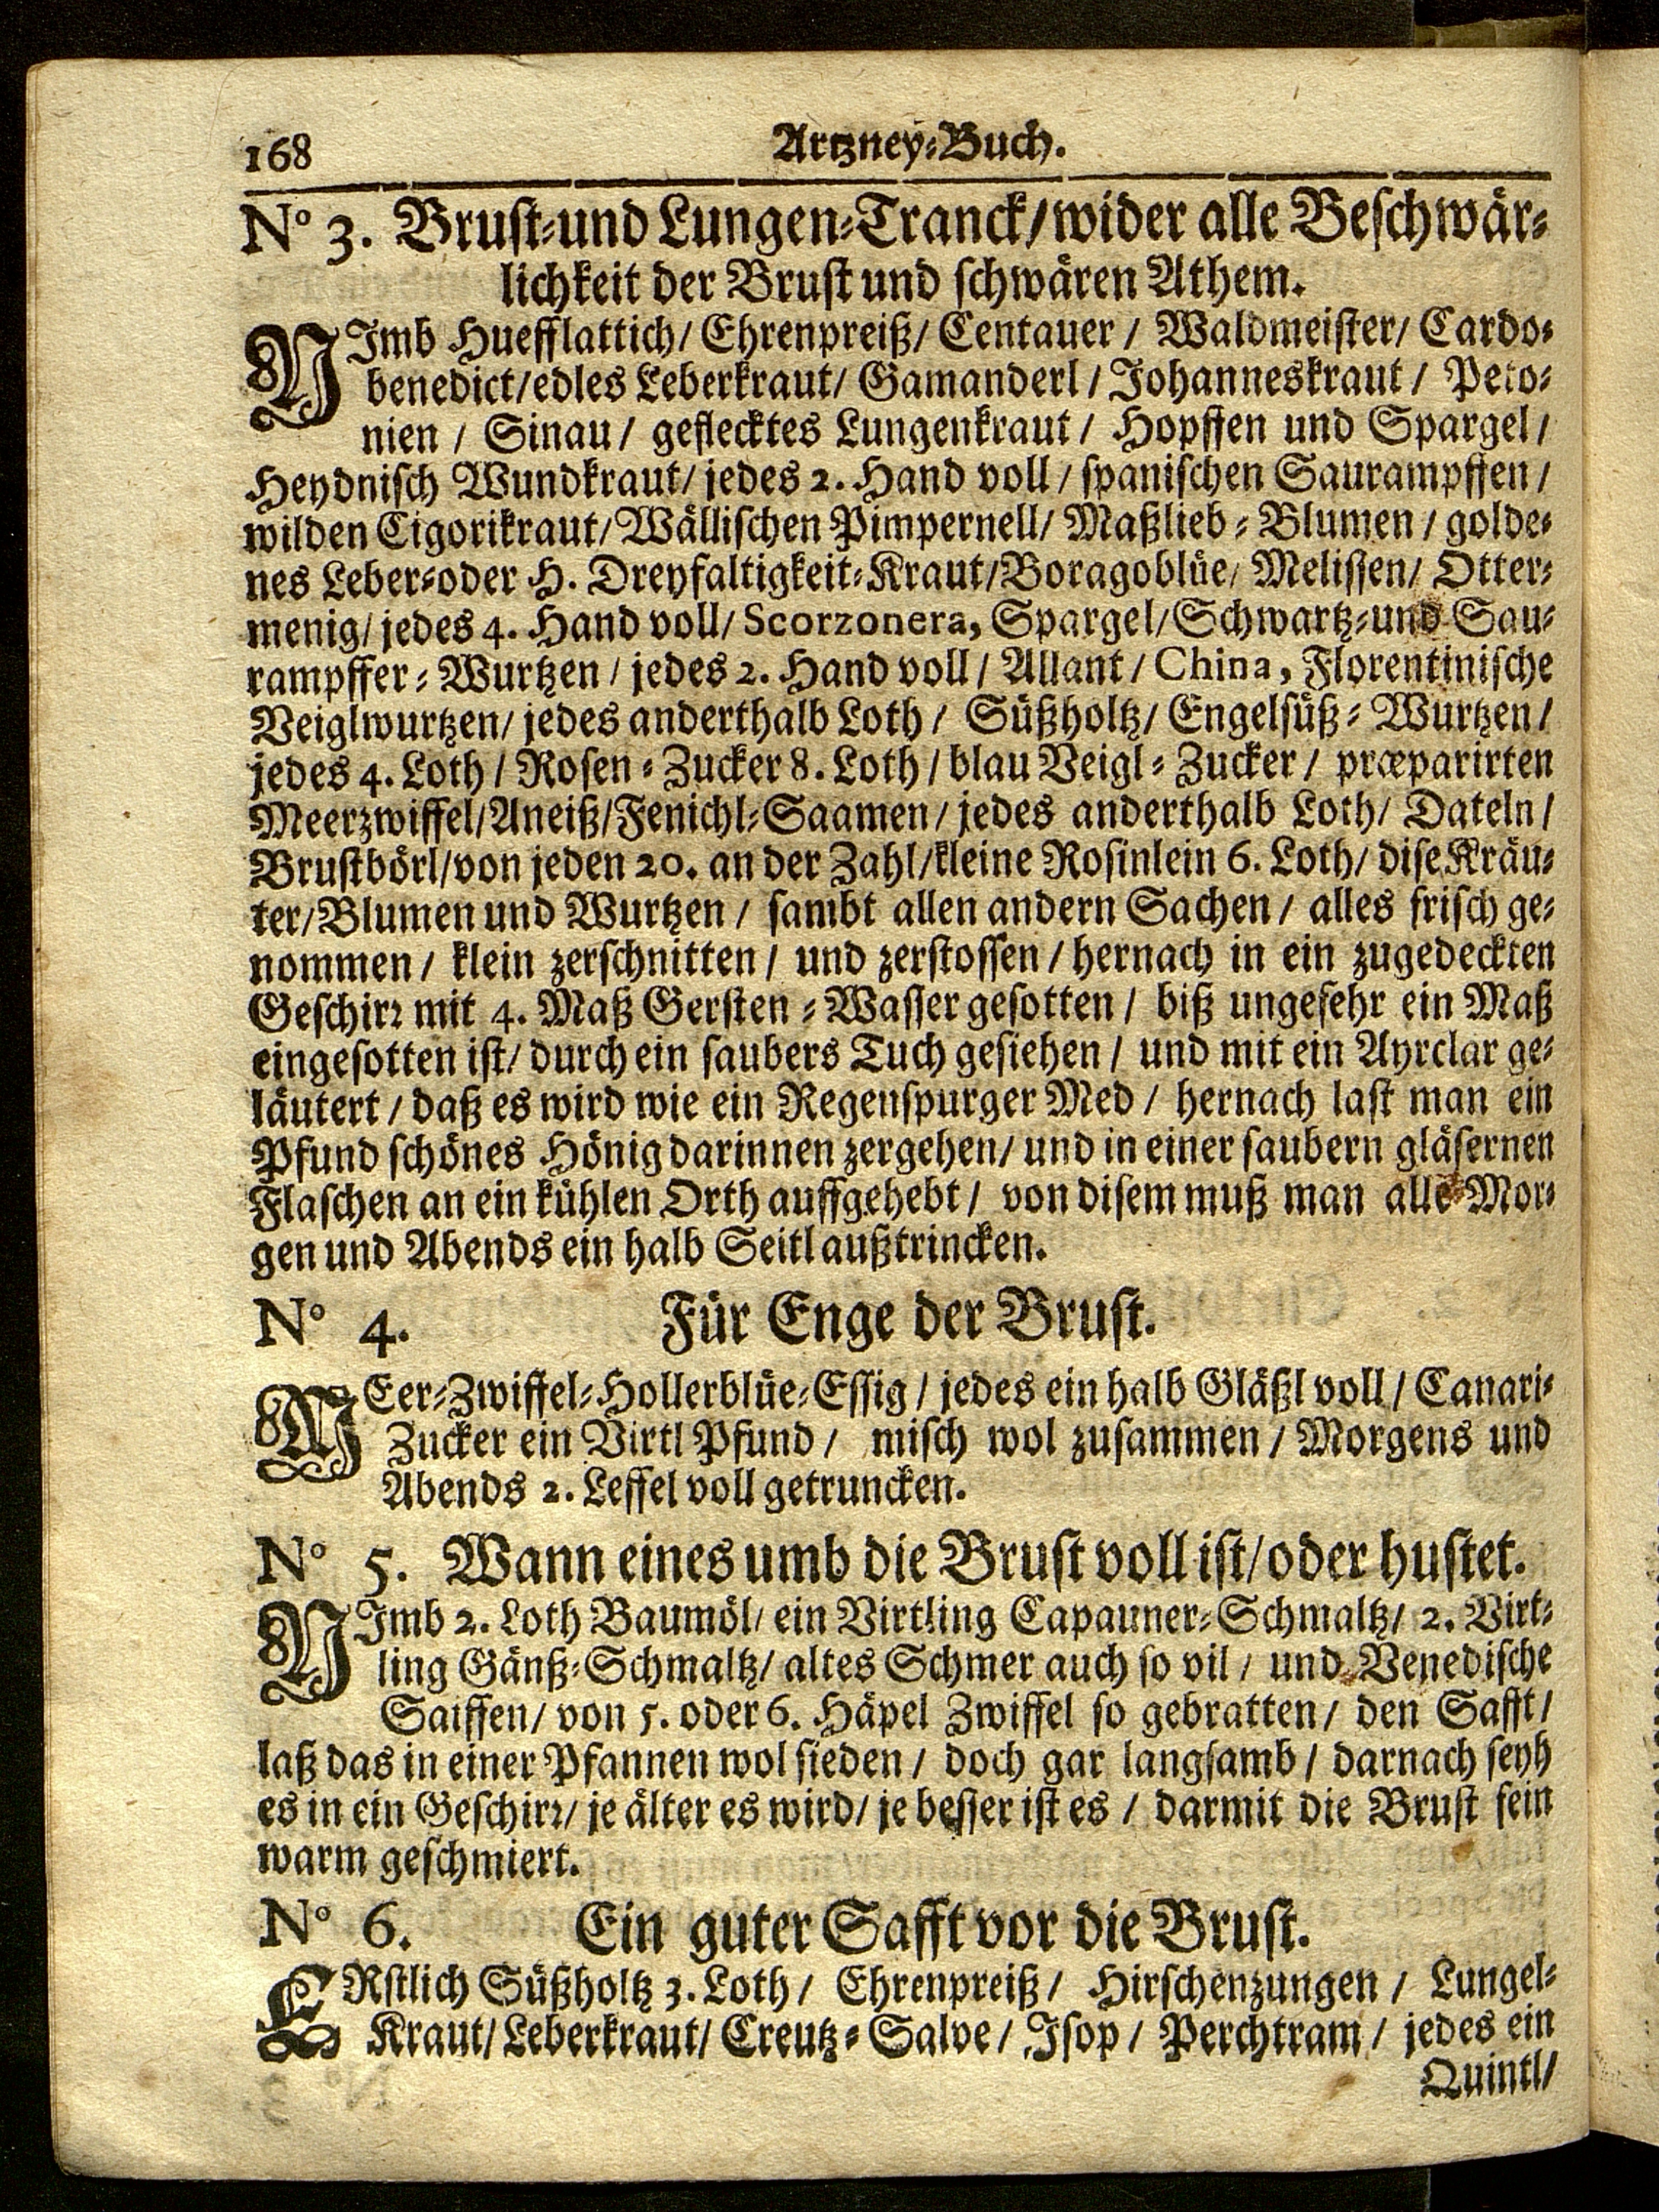 168 Artzney-Buch.
No 3. Brust-und Lungen-Tranck/wider alle Beschwär-
lichkeit der Brust und schwären Athem.
NImb Huefflattich/ Ehrenpreiß/ Centauer / Waldmeister/ Cardo-
benedict/edles Leberkraut/ Gamanderl / Johanneskraut / Peto-
nien / Sinau / geflecktes Lungenkraut / Hopffen und Spargel /
Heydnisch Wundkraut/ jedes 2. Hand voll / spanischen Saurampffen /
wilden Cigorikraut/ Wällischen Pimpernell/ Maßlieb-Blumen / golde-
nes Leber-oder H. Dreyfaltigkeit-Kraut/Boragoblüe/ Melissen/ Otter-
menig/ jedes 4. Hand voll/ Scorzonera, Spargel/Schwartz-und Sau-
rampffer-Wurtzen / jedes 2. Hand voll / Allant / China, Florentinische
Veiglwurtzen/ jedes anderthalb Loth / Süßholtz/ Engelsüß-Wurtzen /
jedes 4. Loth / Rosen-Zucker 8. Loth / blau Veigl-Zucker / præparirten
Meerzwiffel/Aneiß/Fenichl-Saamen / jedes anderthalb Loth/ Dateln /
Brustbörl/von jeden 20. an der Zahl/kleine Rosinlein 6. Loth/ dise Kräu-
ter/Blumen und Wurtzen / sambt allen andern Sachen / alles frisch ge-
nommen / klein zerschnitten / und zerstossen / hernach in ein zugedeckten
Geschirr mit 4. Maß Gersten-Wasser gesotten / biß ungefehr ein Maß
eingesotten ist/ durch ein saubers Tuch gesiehen / und mit ein Ayrclar ge-
läutert / daß es wird wie ein Regenspurger Med / hernach last man ein
Pfund schönes Hönig darinnen zergehen/ und in einer saubern gläsernen
Flaschen an ein kühlen Orth auffgehebt / von disem muß man alle Mor-
gen und Abends ein halb Seitl außtrincken.
No 4. Für Enge der Brust.
MEer-Zwiffel-Hollerblüe-Essig / jedes ein halb Gläßl voll / Canari-
Zucker ein Virtl Pfund / misch wol zusammen / Morgens und
Abends 2. Leffel voll getruncken.
No 5. Wann eines umb die Brust voll ist/oder hustet.
NImb 2. Loth Baumöl/ ein Virtling Capauner-Schmaltz/ 2. Virt-
ling Gänß-Schmaltz/ altes Schmer auch so vil / und Venedische
Saiffen/ von 5. oder 6. Häpel Zwiffel so gebratten/ den Safft /
laß das in einer Pfannen wol sieden / doch gar langsamb / darnach seyh
es in ein Geschirr/ je älter es wird/ je besser ist es / darmit die Brust fein
warm geschmiert.
No 6. Ein guter Safft vor die Brust.
ERstlich Süßholtz 3. Loth / Ehrenpreiß / Hirschenzungen / Lungel-
Kraut/ Leberkraut/ Creutz-Salve / Isop / Perchtram / jedes ein
Quintl/